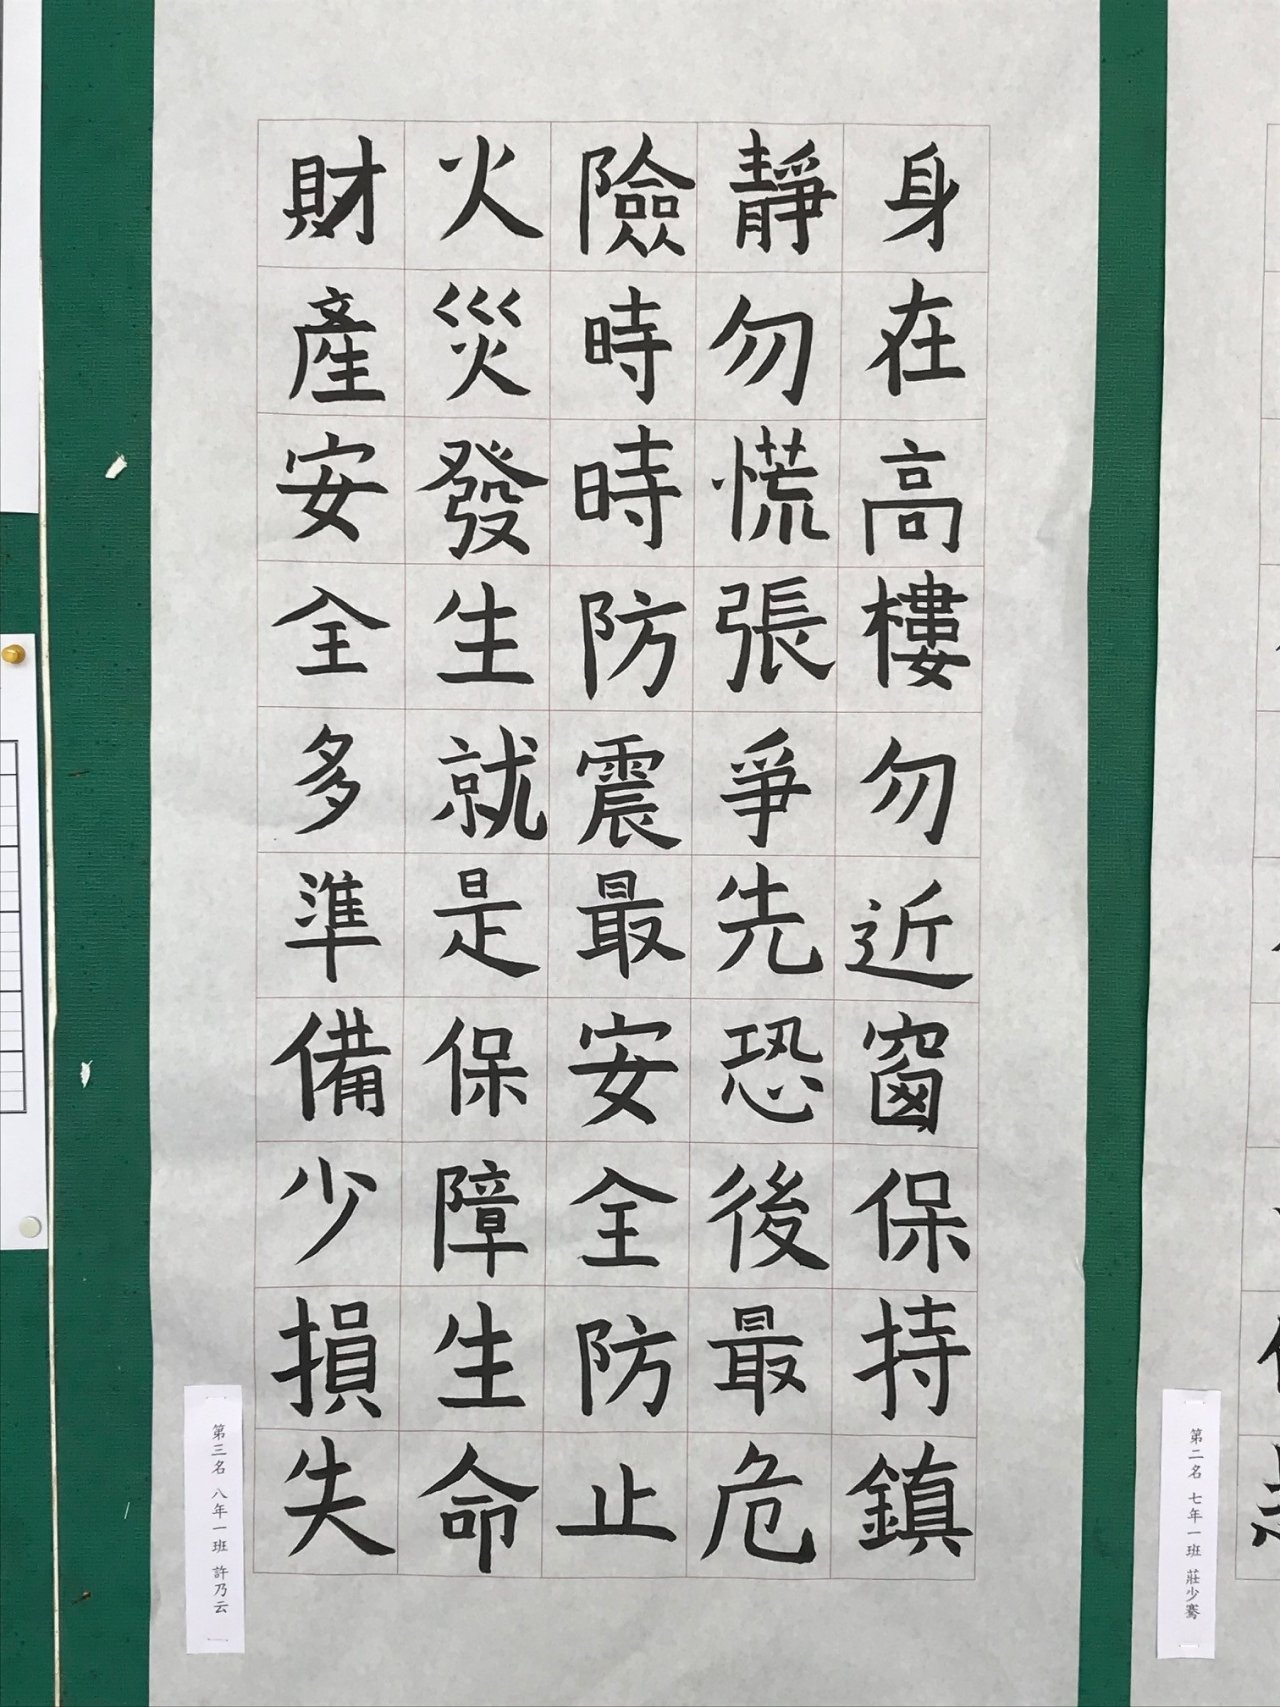 身在高樓勿近窗保持鎮
靜勿慌張爭先恐後最危
險時時防震最安全防止
火災發生就是保障生命
財產安全多準備少損失
第三名 八年一班 許乃云
第二名 七年一班 莊少騫